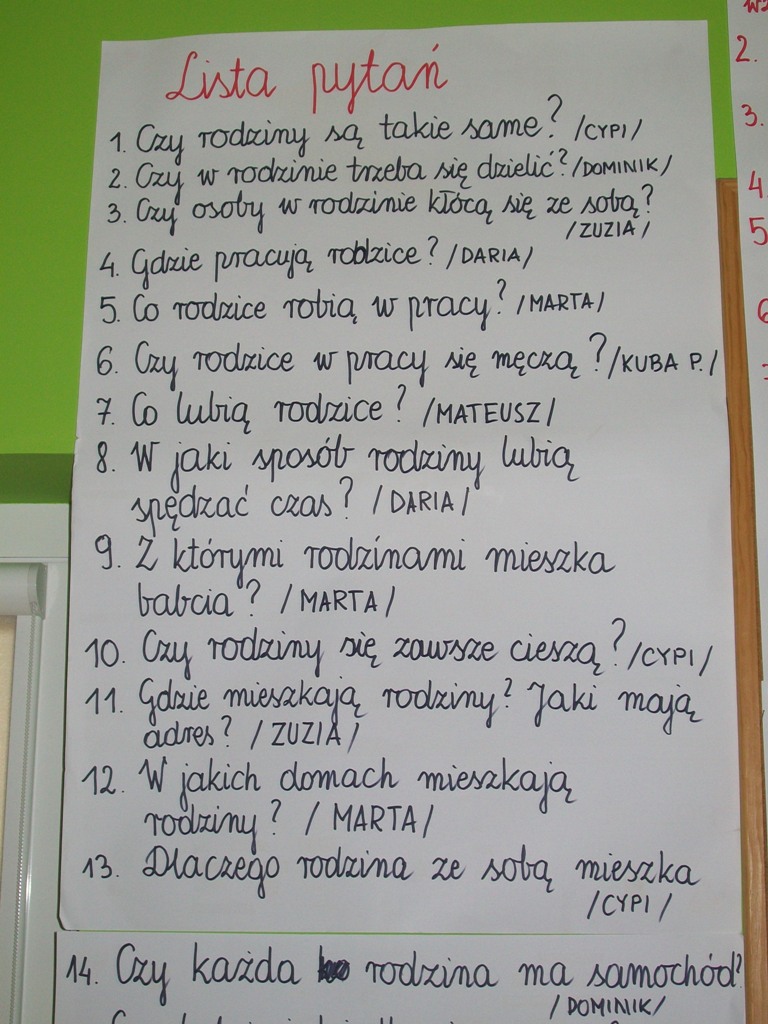 Lista pytań
1. Czy rodziny są takie same? /CYPI/
2. Czy w rodzinie trzeba się dzielić? /DOMINIK/
3. Czy osoby w rodzinie kłócą się ze sobą?
/ZUZIA/
4. Gdzie pracują rodzice? /DARIA/
5. Co rodzice robią w pracy? /MARTA/
6. Czy rodzice w pracy się męczą? /KUBA P./
7. Co lubią rodzice? /MATEUSZ/
8. W jaki sposób rodziny lubią
spędzać czas? /DARIA/
9. Z którymi rodzinami mieszka
babcia? /MARTA/
10. Czy rodziny się zawsze cieszą? /CYPI/
11. Gdzie mieszkają rodziny? Jaki mają
adres? /ZUZIA/
12. W jakich domach mieszkają
rodziny? /MARTA/
13. Dlaczego rodzina ze sobą mieszka
/CYPI/
14. Czy każda rodzina ma samochód?
/DOMINIK/
2.
3.
4
5